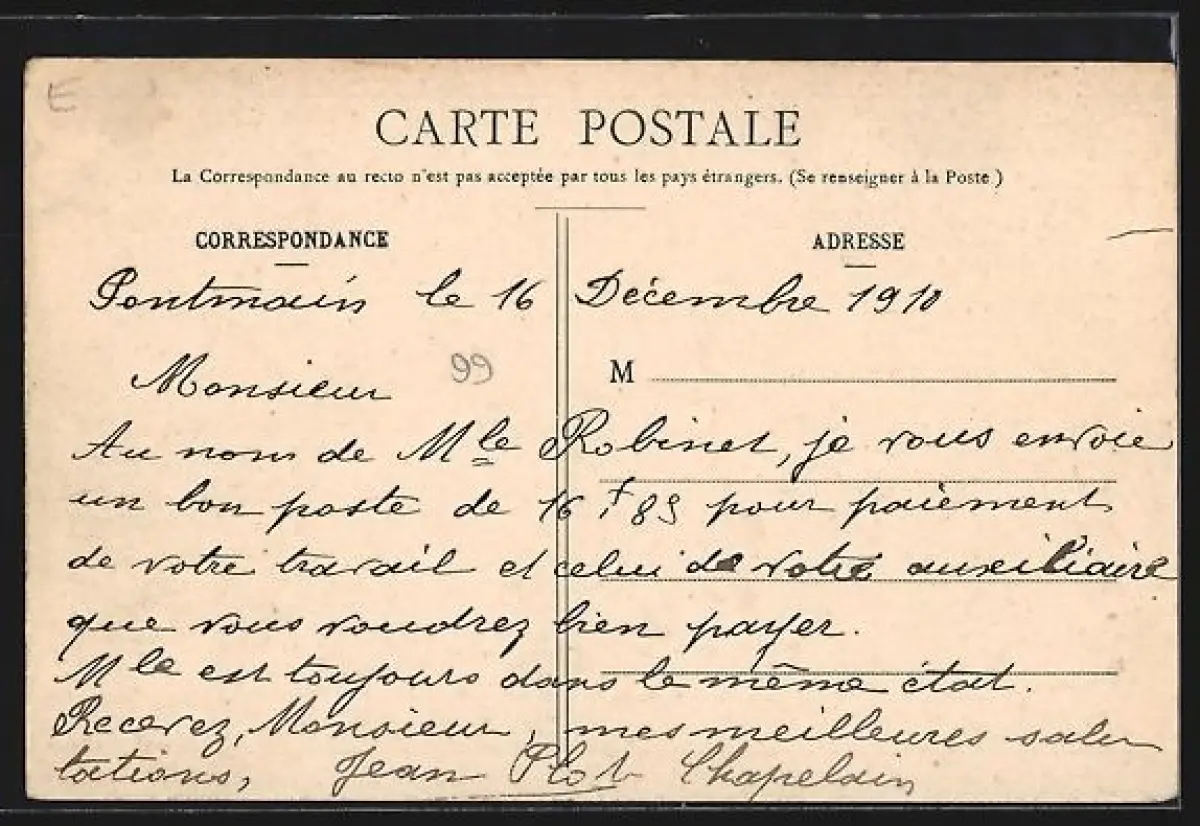 E
CARTE POSTALE
La Correspondance au recto n'est pas acceptée par tous les pays étrangers. (Se renseigner à la Poste )
CORRESPONDANCE
ADRESSE
Pontmain le 16 Décembre 1910
Monsieur
99
M
Au nom de Mle Robinet, je vous envoie
un bon poste de 16 f 85 pour paiement
de votre travail et celui de votre auxiliaire
que vous voudrez bien payer.
Mle est toujours dans le même état.
Recevez, Monsieur, mes meilleures salu
tations, Jean Plot Chapelain